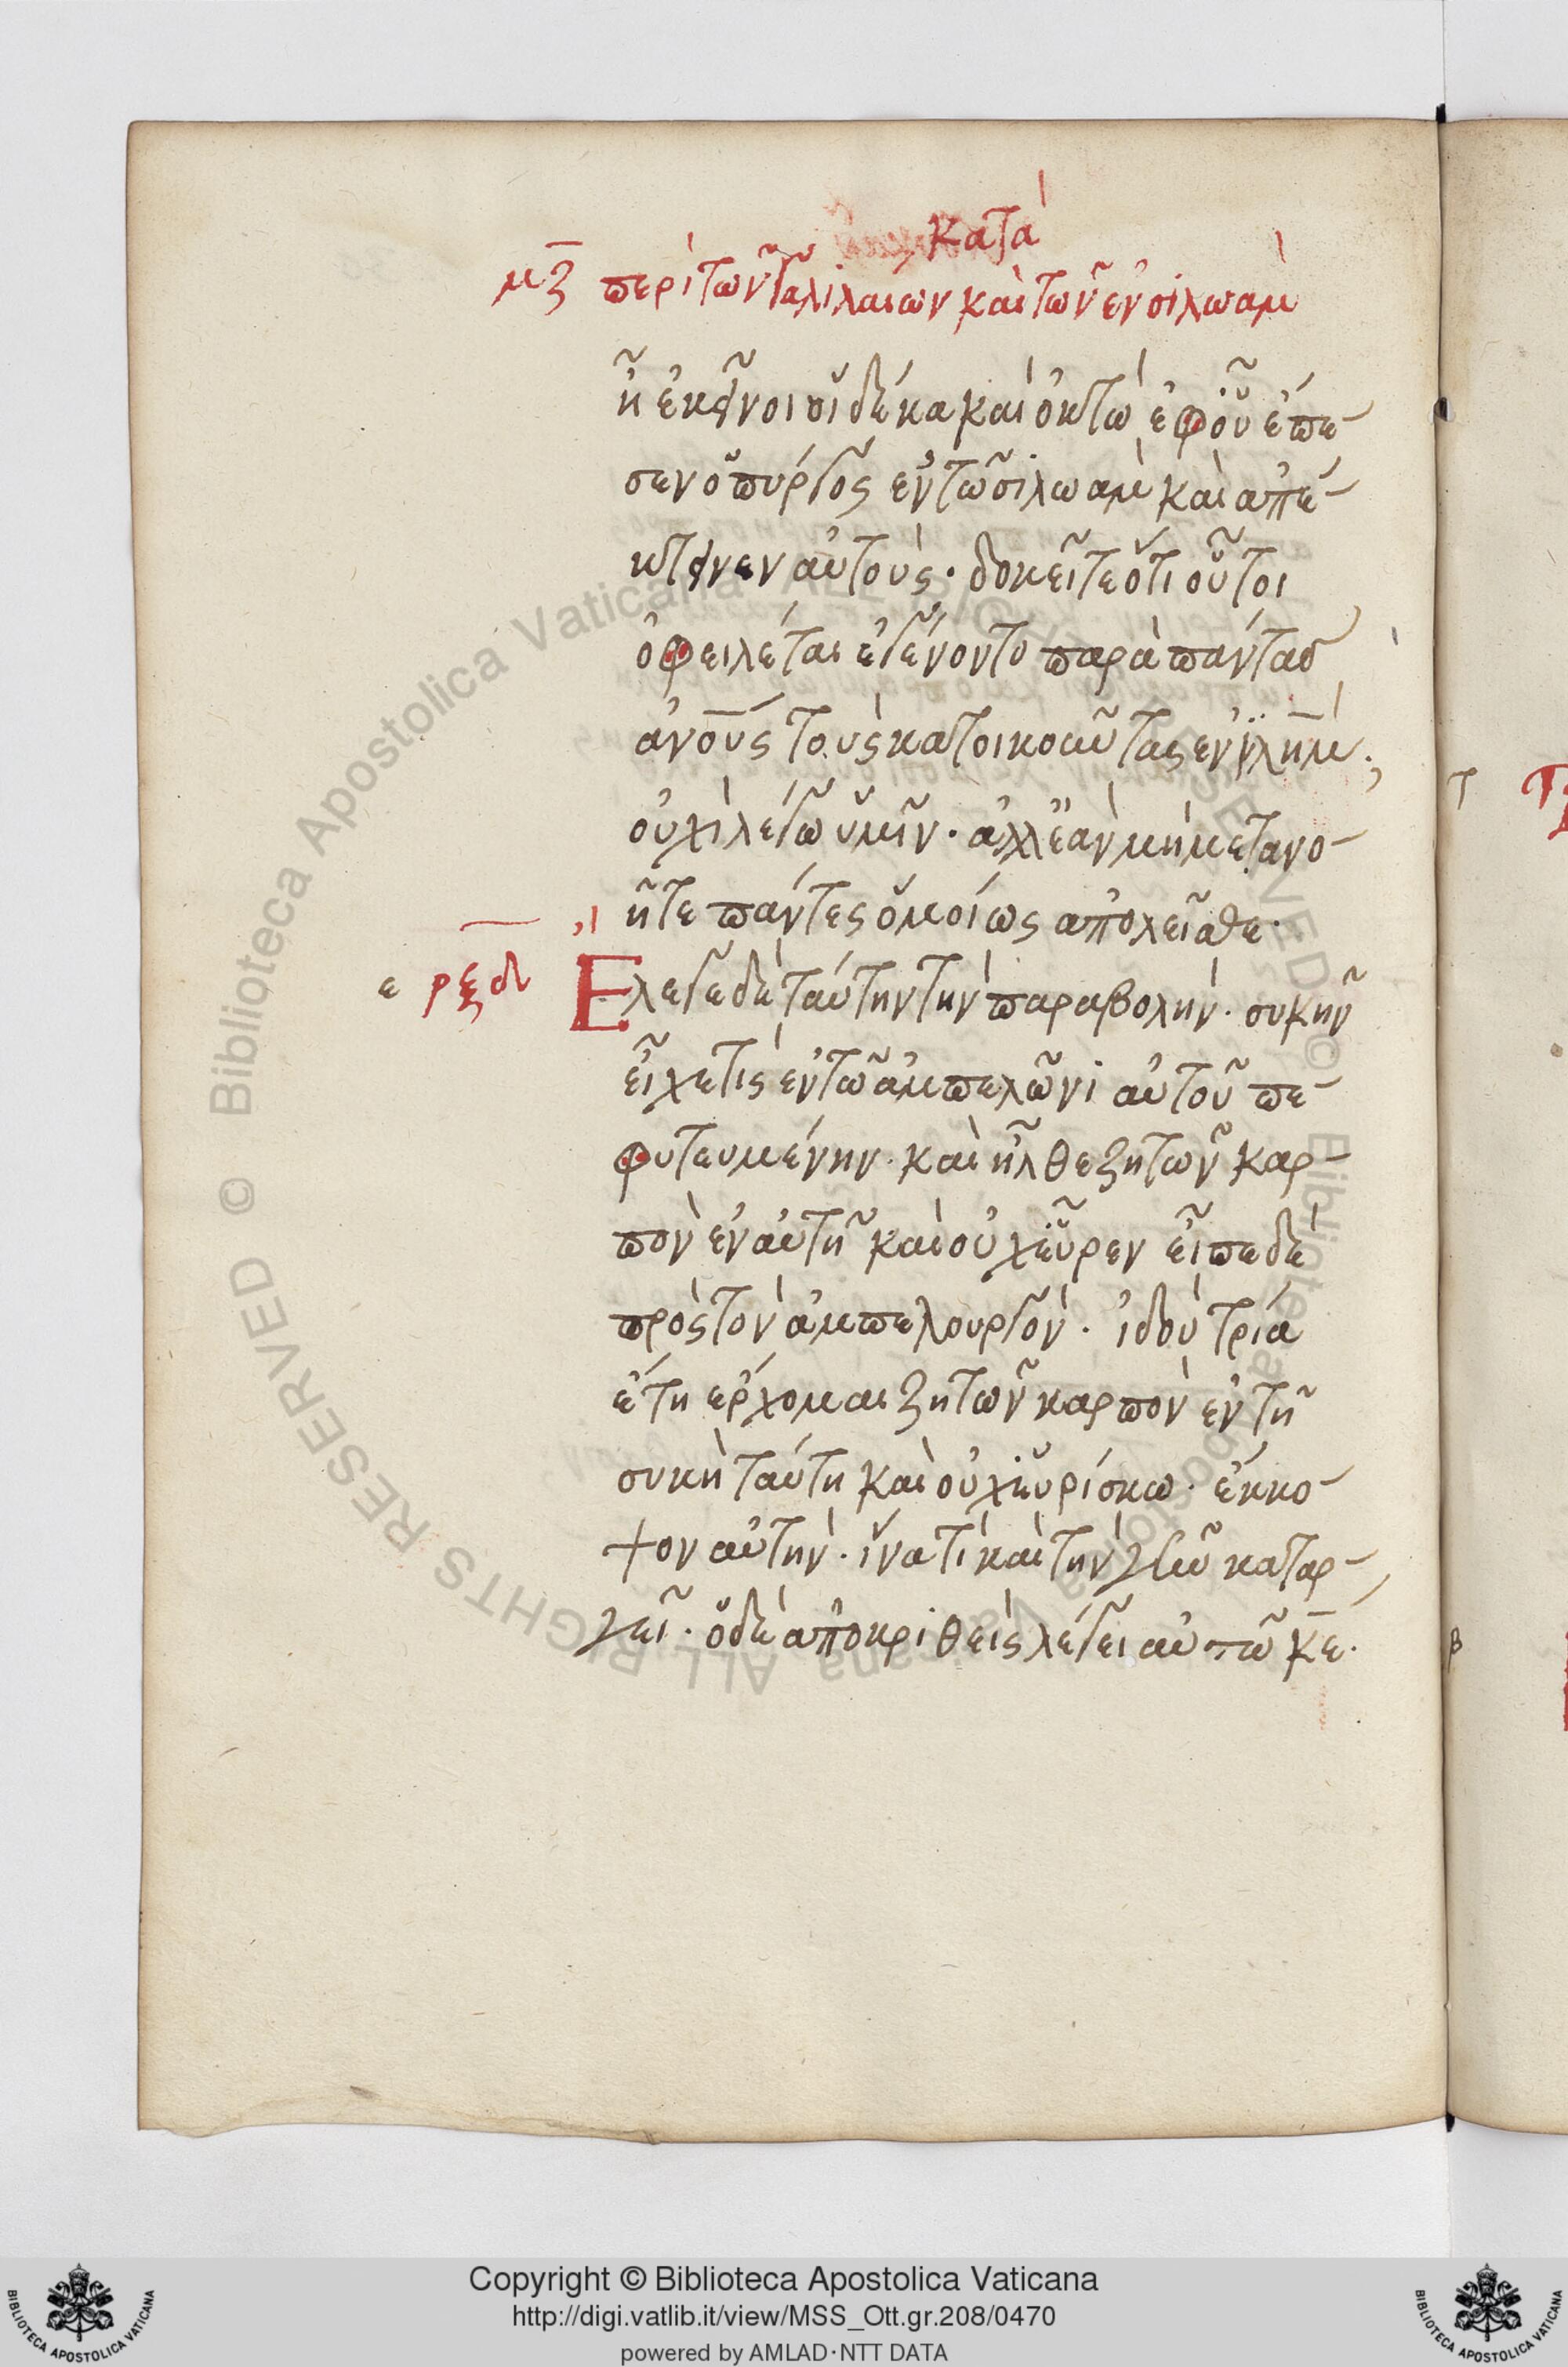 κατὰ
μζ περὶ τῶν γαλιλαίων καὶ τῶν ἐν σιλωὰμ
ἢ ἐκεῖνοι οἱ δέκα καὶ ὀκτὼ ἐφ οὓ ἔπε-
σεν ὁ πύργος ἐν τῶ σιλωὰμ καὶ ἀπέ-
κτεινεν αὐτοὺς· δοκεῖτε ὅτι οὗτοι
ὀφειλέται ἐγένοντο παρὰ πάντας
ἀνους τοὺς κατοικοῦντας ἐν ϊλημ·
οὐχὶ λέγω ὑμῖν· ἀλλ ἐὰν μὴ μετανο-
ῆτε πάντες ὁμοίως ἀπολεῖσθε·
ε ρξδ Ἔλεγε δὲ ταύτην τὴν παραβολήν· συκῆν
εἶχε τὶς ἐν τῶ ἀμπελῶνι αὐτοῦ πε-
φυτευμένην· καὶ ἦλθε ζητῶν καρ-
πὸν ἐν αὐτῆ καὶ οὐχ εὗρεν εἶπε δὲ
πρὸς τὸν ἀμπελουργὸν· ἰδοὺ τρία
ἔτη ἔρχομαι ζητῶν καρπὸν ἐν τῆ
συκῆ ταύτη καὶ οὐχ εὑρίσκω· ἔκκο-
ψον αὐτὴν· ἵνα τὶ καὶ τὴν γῆν καταρ-
γεῖ· ὁ δὲ ἀποκριθεὶς λέγει αὐτῶ κε·
τ
β
© Biblioteca Apostolica Vaticana ALL RIGHTS RESERVED
Copyright © Biblioteca Apostolica Vaticana
http://digi.vatlib.it/view/MSS_Ott.gr.208/0470
powered by AMLAD·NTT DATA
BIBLIOTECA APOSTOLICA VATICANA
BIBLIOTECA APOSTOLICA VATICANA